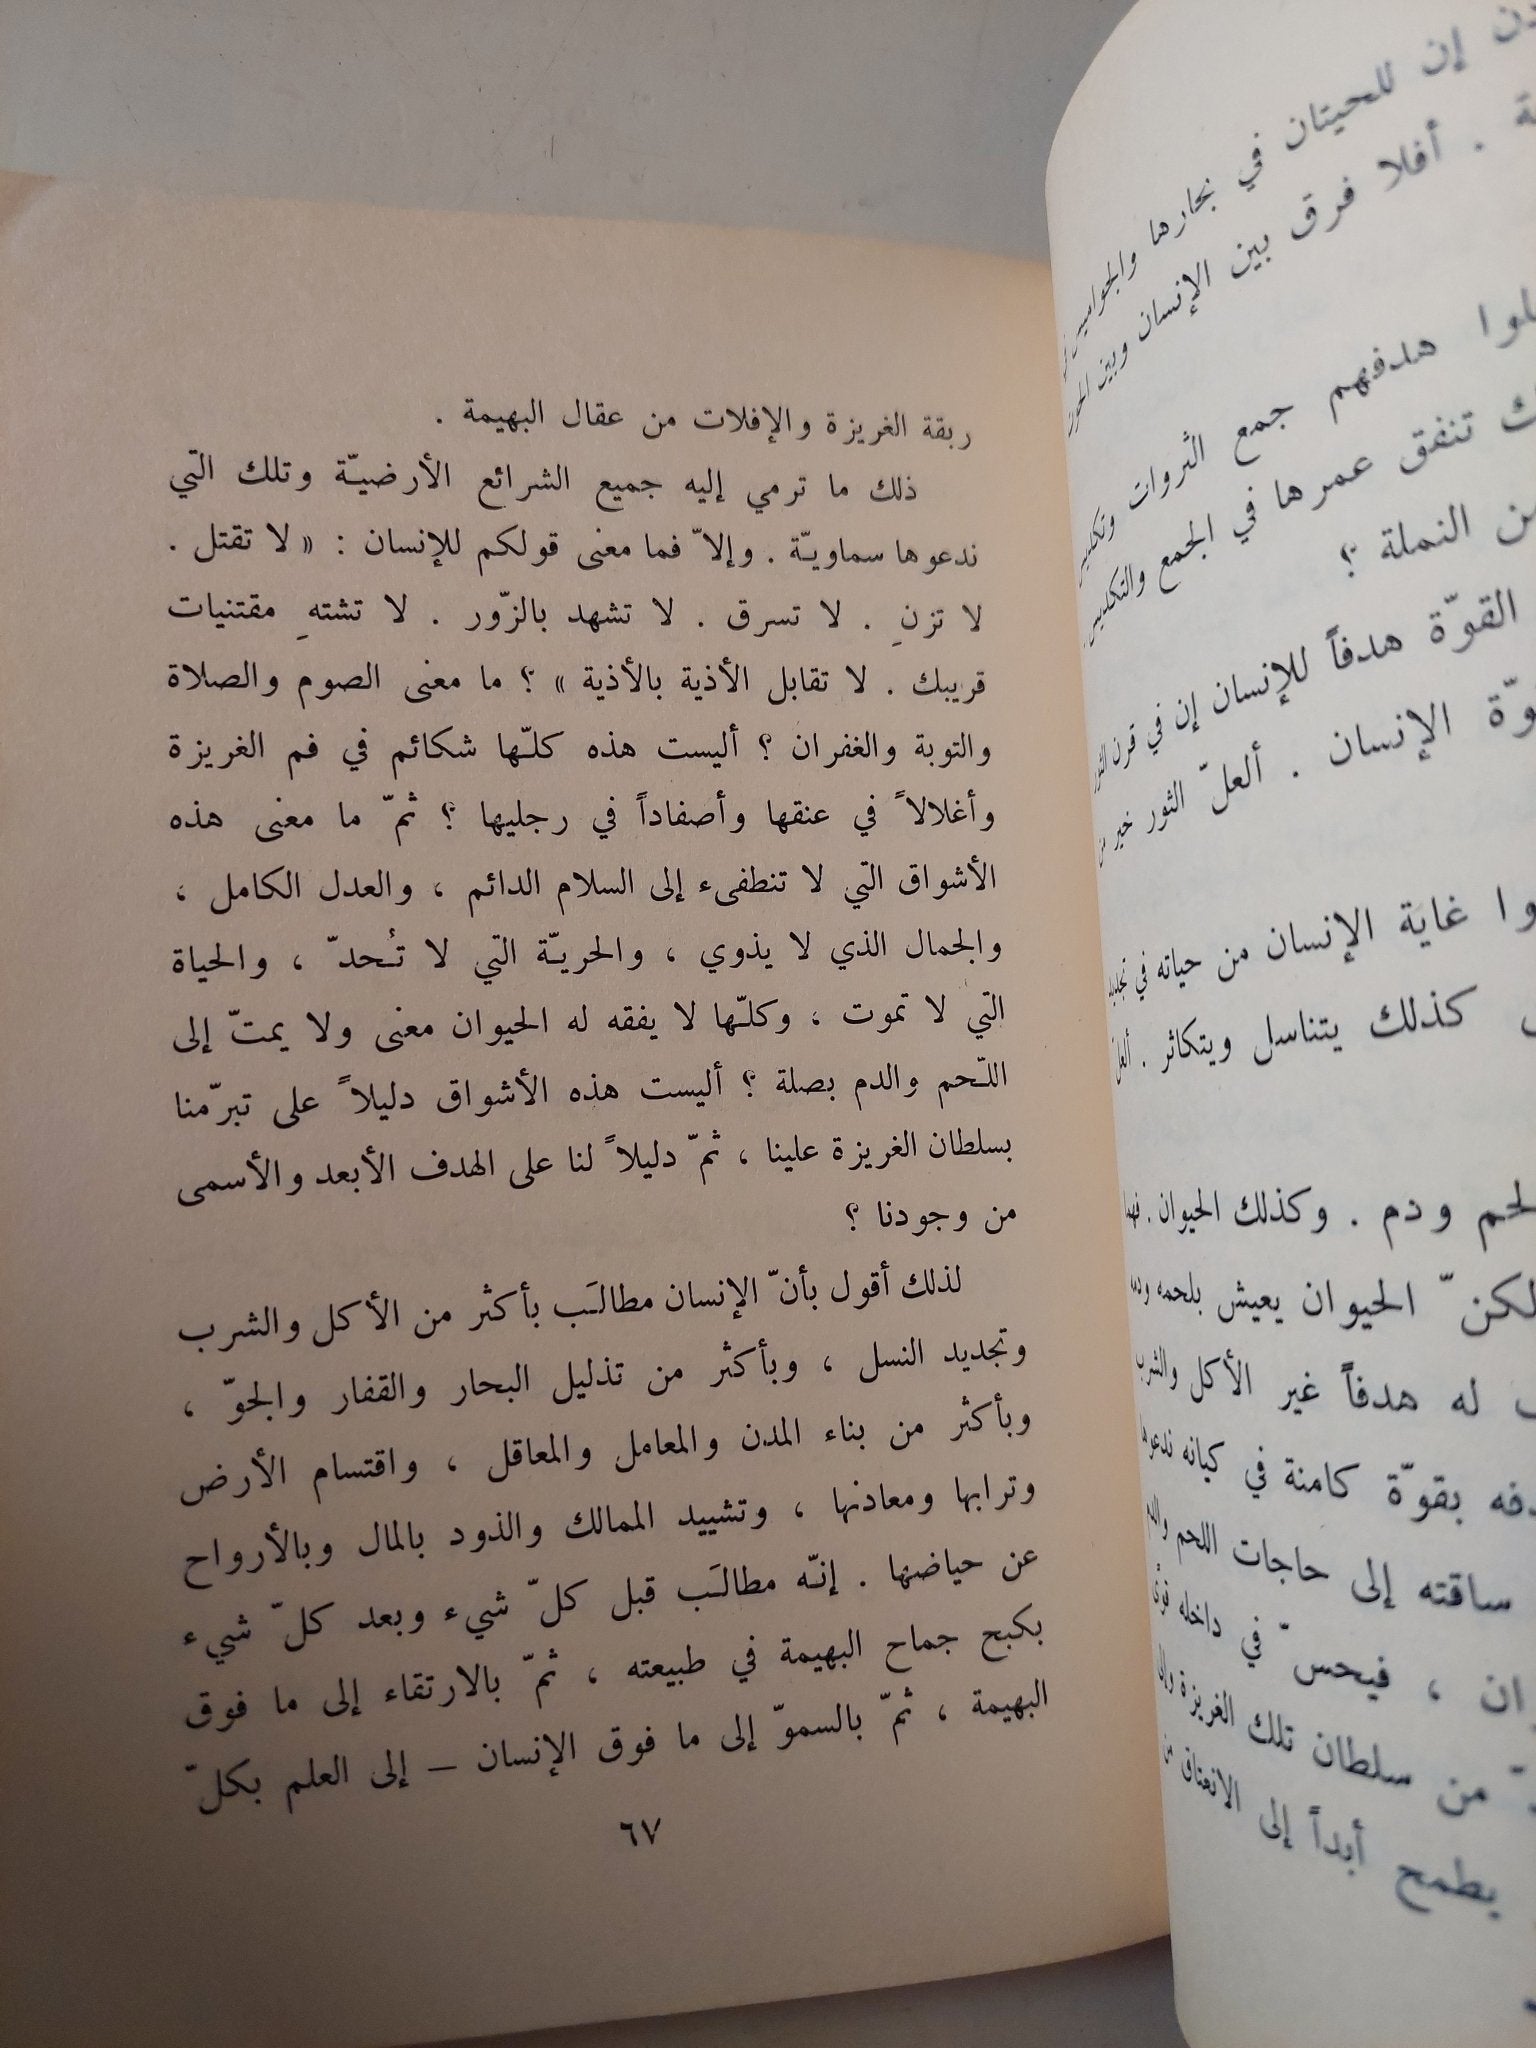 ن إن للحيتان في بحارها والجواميس
ة . أفلا فرق بين الإنسان وبين الحوت
لوا هدفهم جمع الثروات وتكديس
ك تنفق عمرها في الجمع والتكديس .
ن النملة ؟
القوّة هدفاً للإنسان إن في قرن الثور
وّة الإنسان . ألعلّ الثور خير من
وا غاية الإنسان من حياته في تجديد
كذلك يتناسل ويتكاثر . ألعلّ
لحم ودم . وكذلك الحيوان . فهما
لكنّ الحيوان يعيش بلحمه ودمه
له هدفاً غير الأكل والشرب
دفه بقوّة كامنة في كيانه ندعوها
ساقته إلى حاجات اللحم والدم
ان ، فيحسّ في داخله قوًى
من سلطان تلك الغريزة وإلى
يطمح أبداً إلى الانعتاق من
ربقة الغريزة والإفلات من عقال البهيمة .
ذلك ما ترمي إليه جميع الشرائع الأرضيّة وتلك التي
ندعوها سماويّة . وإلاّ فما معنى قولكم للإنسان : « لا تقتل .
لا تزنِ . لا تسرق . لا تشهد بالزّور . لا تشتهِ مقتنيات
قريبك . لا تقابل الأذية بالأذية » ؟ ما معنى الصوم والصلاة
والتوبة والغفران ؟ أليست هذه كلّها شكائم في فم الغريزة
وأغلالاً في عنقها وأصفاداً في رجليها ؟ ثمّ ما معنى هذه
الأشواق التي لا تنطفىء إلى السلام الدائم ، والعدل الكامل ،
والجمال الذي لا يذوي ، والحريّة التي لا تُحدّ ، والحياة
التي لا تموت ، وكلّها لا يفقه له الحيوان معنى ولا يمتّ إلى
اللّحم والدم بصلة ؟ أليست هذه الأشواق دليلاً على تبرّمنا
بسلطان الغريزة علينا ، ثمّ دليلاً لنا على الهدف الأبعد والأسمى
من وجودنا ؟
لذلك أقول بأنّ الإنسان مطالَب بأكثر من الأكل والشرب
وتجديد النسل ، وبأكثر من تذليل البحار والقفار والجوّ ،
وبأكثر من بناء المدن والمعامل والمعاقل ، واقتسام الأرض
وترابها ومعادنها ، وتشييد الممالك والذود بالمال وبالأرواح
عن حياضها . إنّه مطالَب قبل كلّ شيء وبعد كلّ شيء
بكبح جماح البهيمة في طبيعته ، ثمّ بالارتقاء إلى ما فوق
البهيمة ، ثمّ بالسموّ إلى ما فوق الإنسان – إلى العلم بكلّ
٦٧